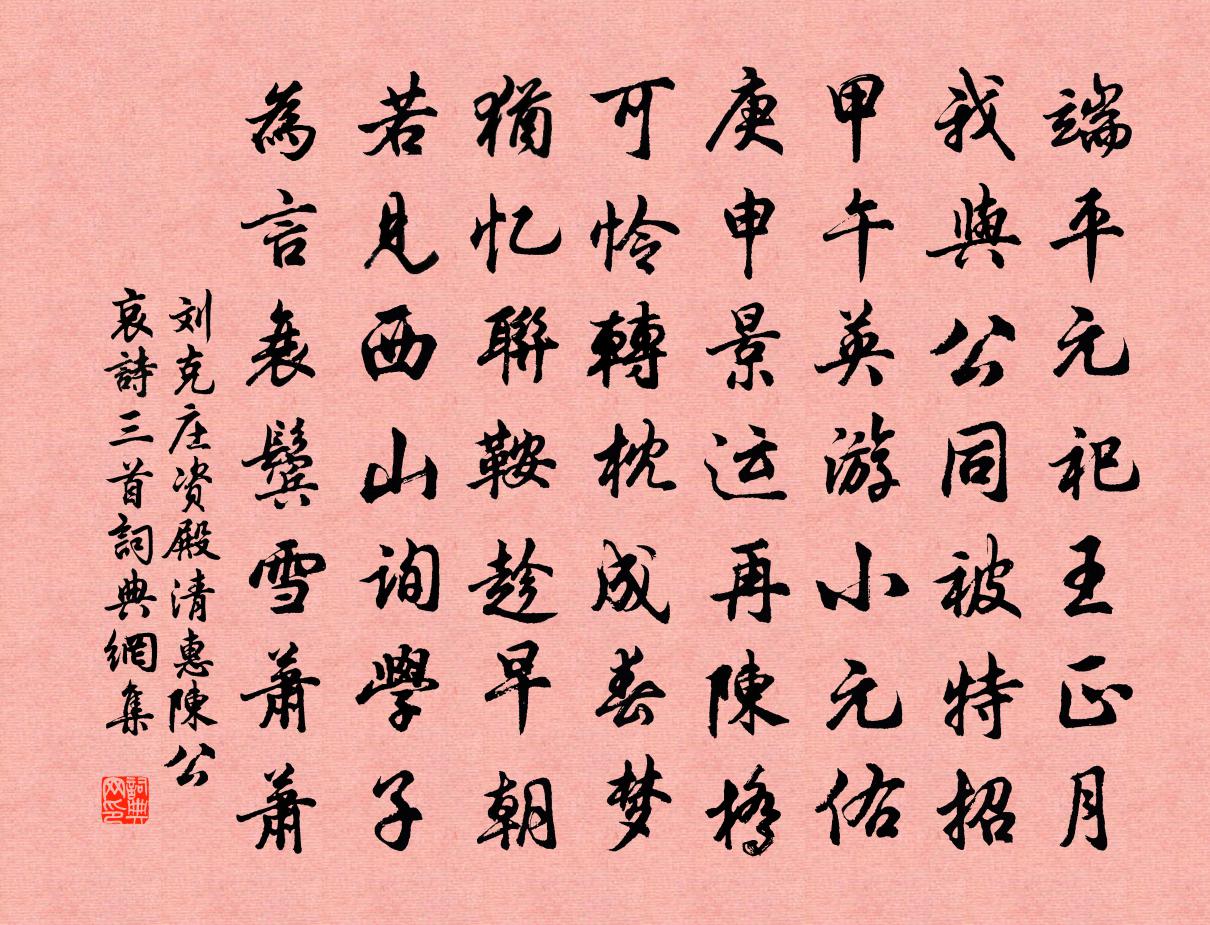 端平元祀王正月
我與公同被特招
甲午英游小元佑
庚申景运再陳橋
可怜轉枕成春梦
猶忆聯鞍趁早朝
若見西山询學子
為言衰鬓雪蕭蕭
刘克庄资殿清惠陳公
哀詩三首詞典網集
詞典
网印